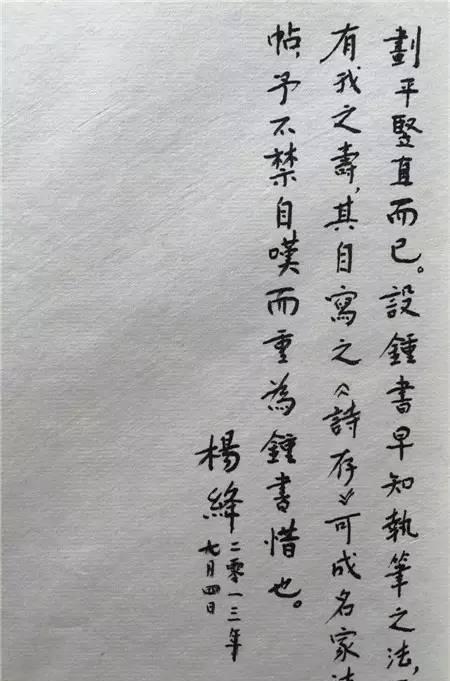 劃平竪直而已。設鍾書早知執筆之法，
有我之壽，其自寫之《詩存》可成名家
帖，予不禁自嘆而重為鍾書惜也。
楊絳
二零一三年
九月四日